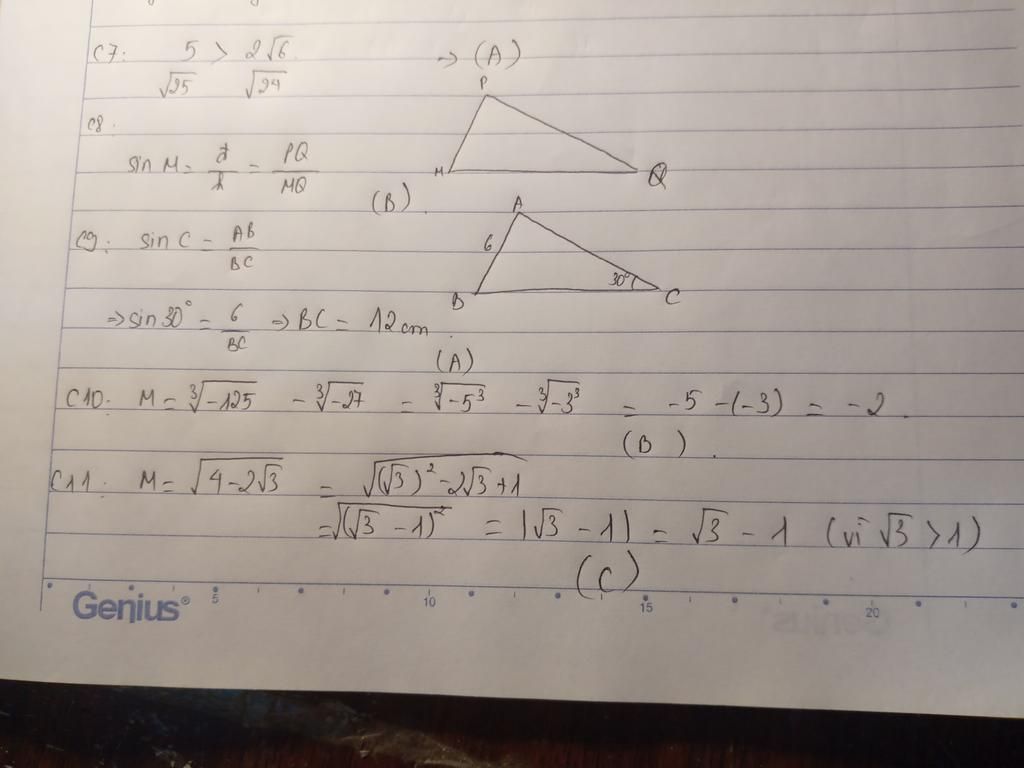 C7: 5 > 2√6. → (A)
√25 √24
P
C8.
sin M = đ/h = PQ/MQ
M Q
(B).
A
C9: sin C = AB/BC
6
30°
B C
⇒ sin 30° = 6/BC ⇒ BC = 12 cm.
(A)
C10: M = ∛-125 - ∛-27 = ∛-5³ - ∛-3³ = -5 -(-3) = -2.
(B).
C11: M = √4-2√3 = √(√3)²-2√3+1
= √(√3 -1)² = |√3 - 1| = √3 - 1 (vì √3 > 1)
(C)
Genius® 5 10 15 20